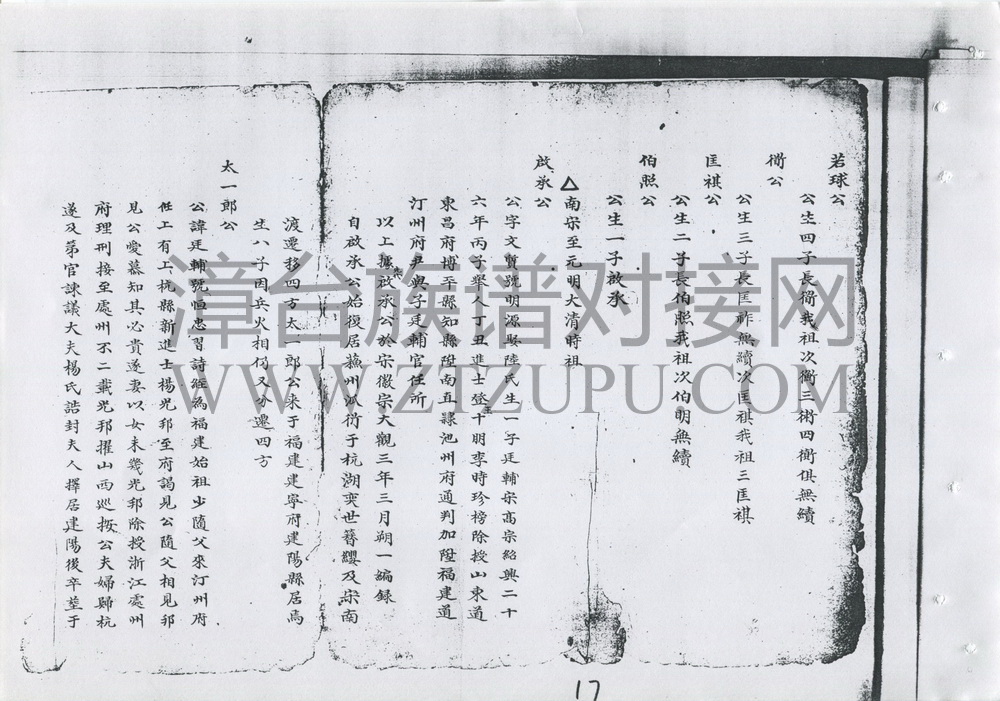 若球公
公生四子長衢我祖次衢三術四衢俱無續
衢公
公生三子長匡祚無續次匡祺我祖三匡祺
匡祺公
公生二子長伯照我祖次伯明無續
伯照公
公生一子啟承
△南宋至元明大清時祖
啟承公
公字文質號明源娶陸氏生一子廷輔宋高宗紹興二十
六年丙子舉人丁丑進士登十明李時珍榜除授山東道
東昌府博平縣知縣陞南直隸池州府通判加陞福建道
汀州府尹與子廷輔官任所
以上啟承公於宋徽宗大觀三年三月朔一編錄
自啟承公始復居蘇州派衍于杭湖奕世簪纓及宋南
渡遷移四方太一郎公來于福建建寧府建陽縣居焉
生八子因兵火相仍又分遷四方
太一郎公
公諱廷輔號恒忠習詩經為福建始祖少隨父來汀州府
任上有上杭縣新進士楊光邦至府謁見公隨父相見邦
見公愛慕知其必貴遂妻以女未幾光邦除授浙江處州
府理刑接至處州不二載光邦擢山西巡按公夫婦歸杭
遂及第官諫議大夫楊氏誥封夫人擇居建陽後卒塟于
漳台族谱对接网
WWW.ZTZUPU.COM
17